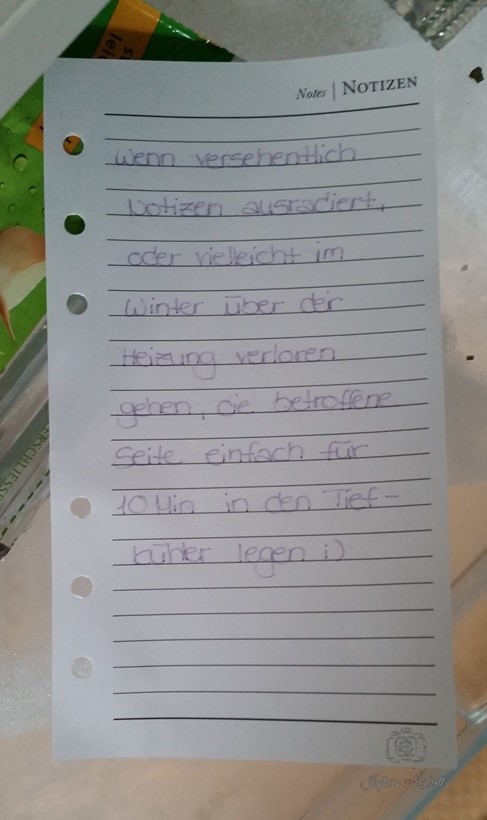 Notes | NOTIZEN
Wenn versehentlich
Notizen ausradiert,
oder vielleicht im
Winter über der
Heizung verloren
gehen, die betroffene
Seite einfach für
10 Min in den Tief-
kühler legen ;)